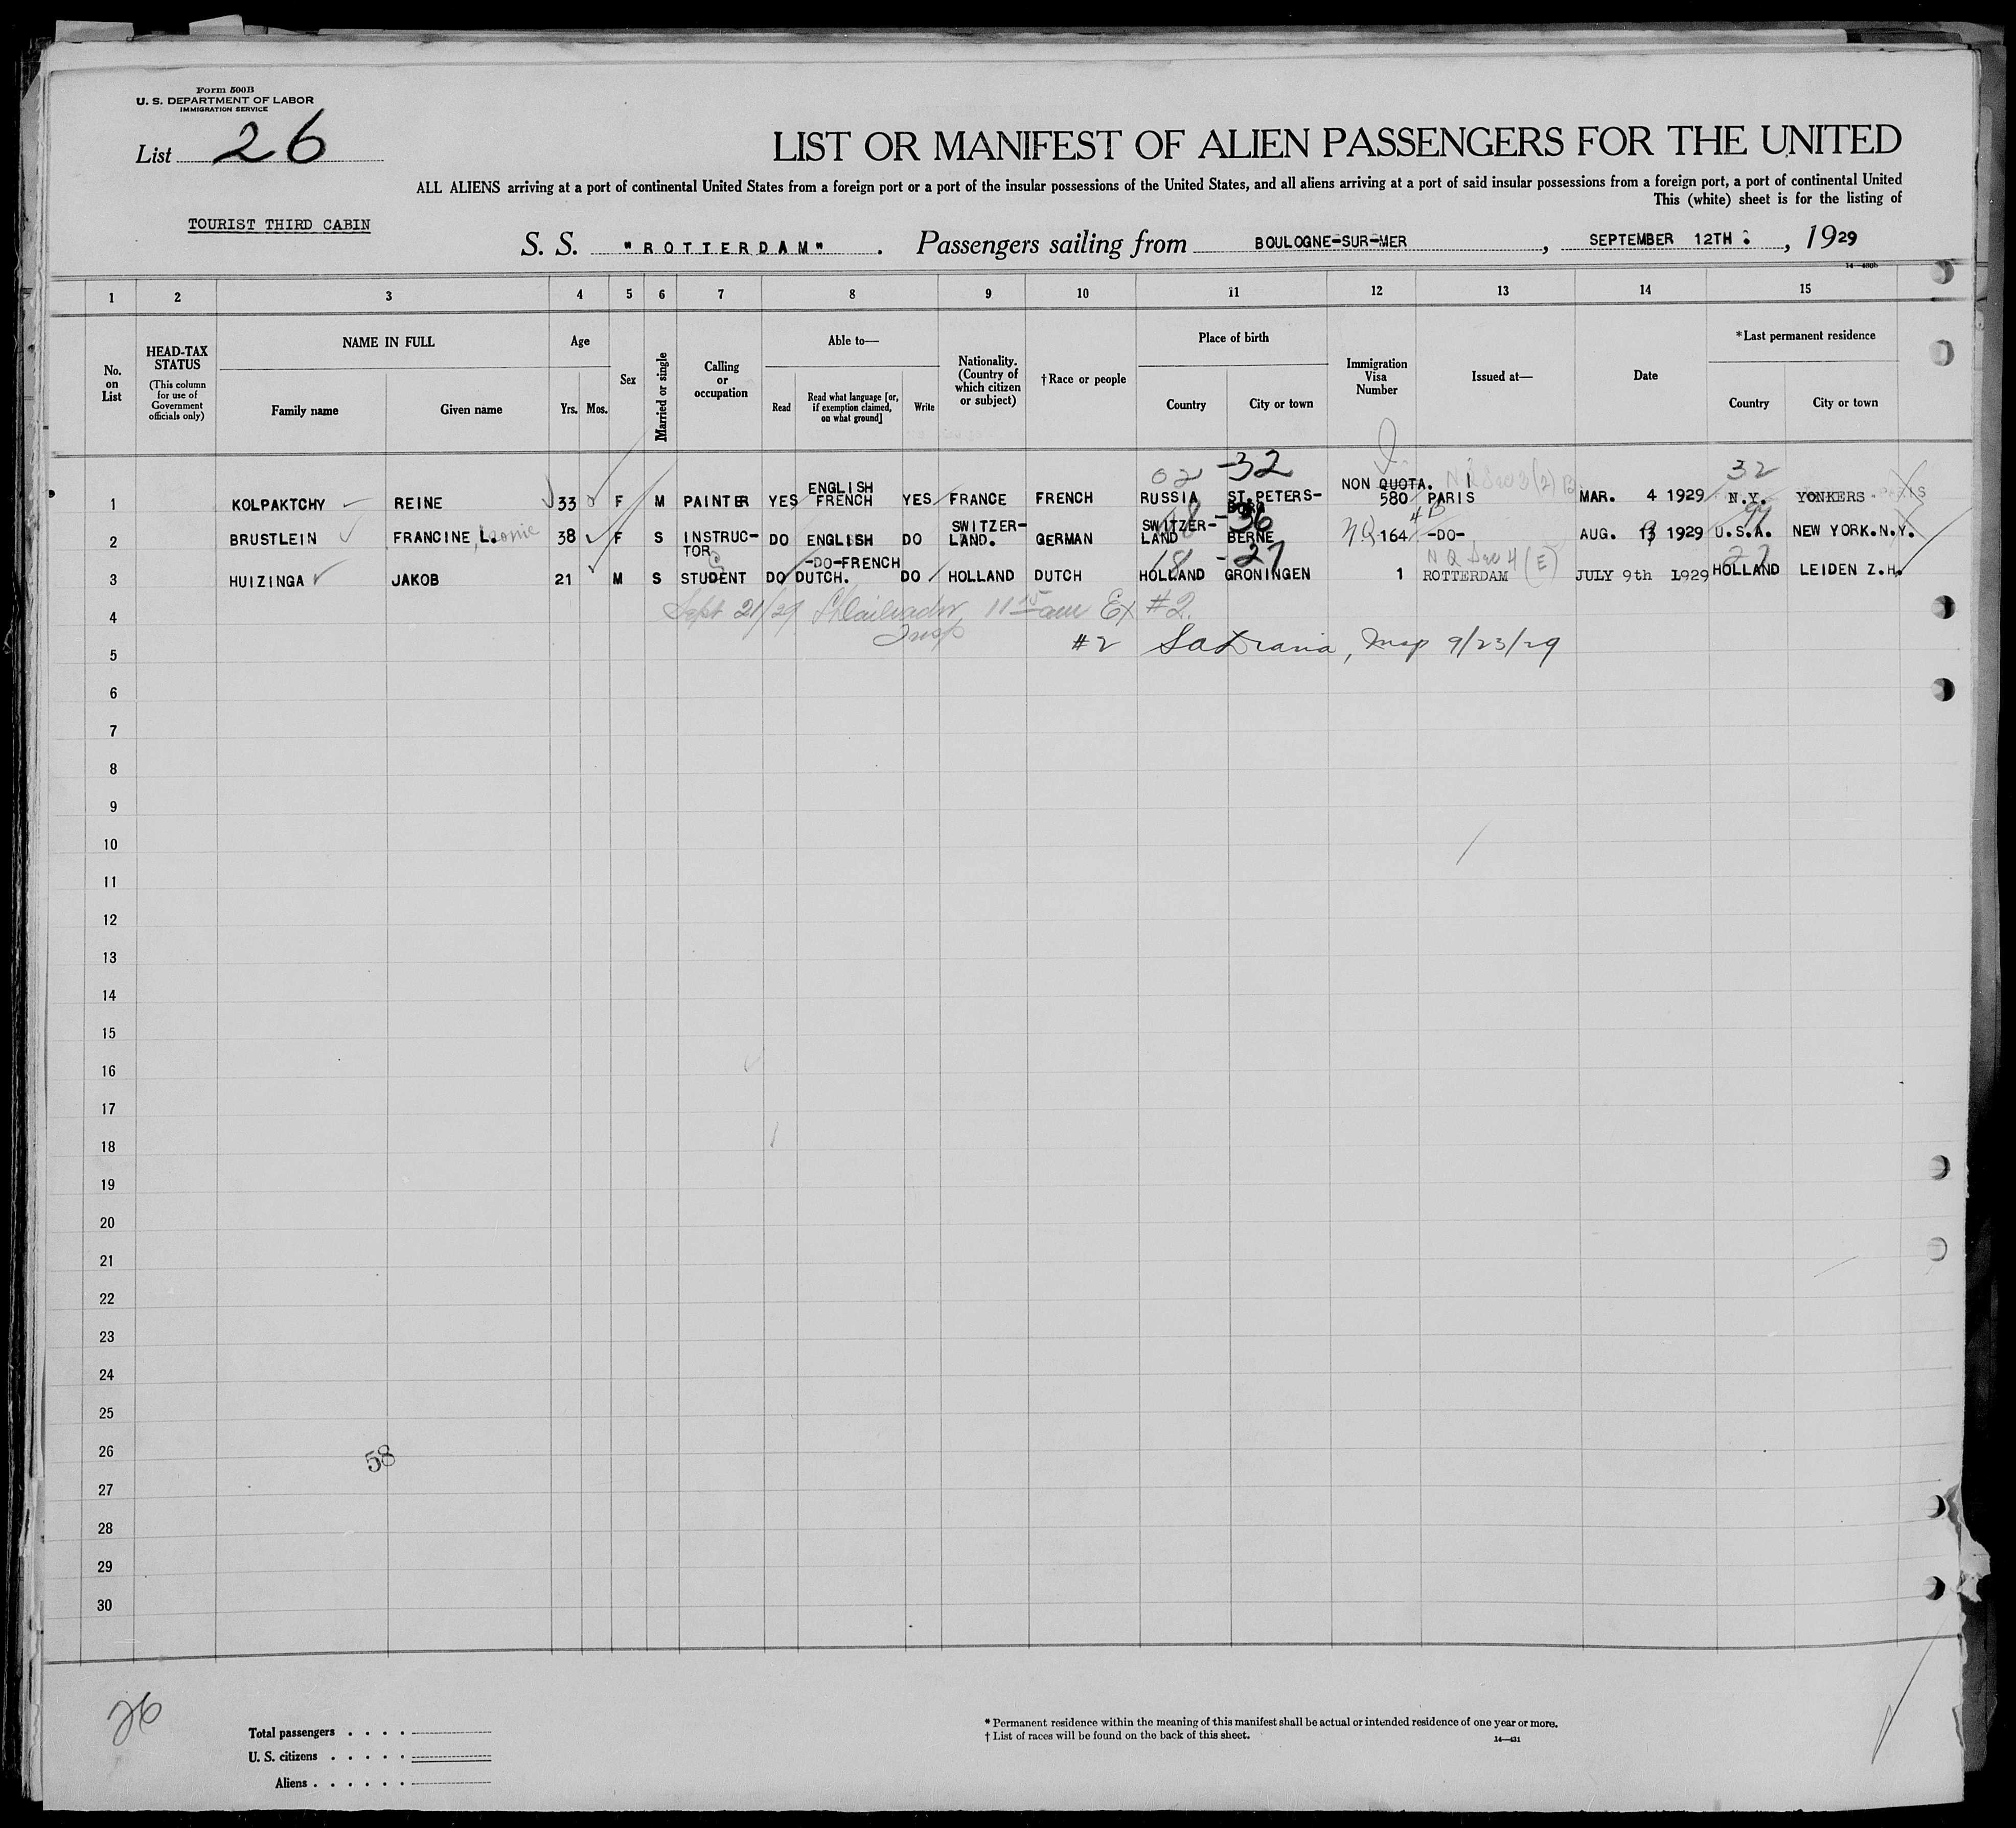 Form 500B
U. S. DEPARTMENT OF LABOR
IMMIGRATION SERVICE
List 26
LIST OR MANIFEST OF ALIEN PASSENGERS FOR THE UNITED
ALL ALIENS arriving at a port of continental United States from a foreign port or a port of the insular possessions of the United States, and all aliens arriving at a port of said insular possessions from a foreign port, a port of continental United
This (white) sheet is for the listing of
TOURIST THIRD CABIN
S. S. "ROTTERDAM". Passengers sailing from BOULOGNE-SUR-MER, SEPTEMBER 12TH, 1929
1 2 3 4 5 6 7 8 9 10 11 12 13 14 15
No. on List
HEAD-TAX STATUS (This column for use of Government officials only)
NAME IN FULL
Family name Given name
Age
Yrs. Mos.
Sex
Married or single
Calling or occupation
Able to—
Read Read what language [or, if exemption claimed, on what ground] Write
Nationality. (Country of which citizen or subject)
†Race or people
Place of birth
Country City or town
Immigration Visa Number
Issued at—
Date
*Last permanent residence
Country City or town
02 -32 32
1 KOLPAKTCHY REINE 33 F M PAINTER YES ENGLISH FRENCH YES FRANCE FRENCH RUSSIA ST.PETERS-BURG NON QUOTA. 580 PARIS MAR. 4 1929 N.Y. YONKERS
18 -36 99
2 BRUSTLEIN FRANCINE L. Leonie 38 F S INSTRUC-TOR DO ENGLISH DO SWITZER-LAND. GERMAN SWITZER-LAND BERNE NQ 164 4B -DO- AUG. 13 1929 U.S.A. NEW YORK.N.Y.
18 -27 N Q Sec 4 (E) 27
3 HUIZINGA JAKOB 21 M S STUDENT DO -DO-FRENCH DUTCH. DO HOLLAND DUTCH HOLLAND GRONINGEN 1 ROTTERDAM JULY 9th 1929 HOLLAND LEIDEN Z.H.
4 Sept 21/29 11 15 am Ex #2.
Insp
5 #2 Insp 9/23/29
6
7
8
9
10
11
12
13
14
15
16
17
18
19
20
21
22
23
24
25
26
58
27
28
29
30
26
Total passengers
U. S. citizens
Aliens
* Permanent residence within the meaning of this manifest shall be actual or intended residence of one year or more.
† List of races will be found on the back of this sheet.
14—431